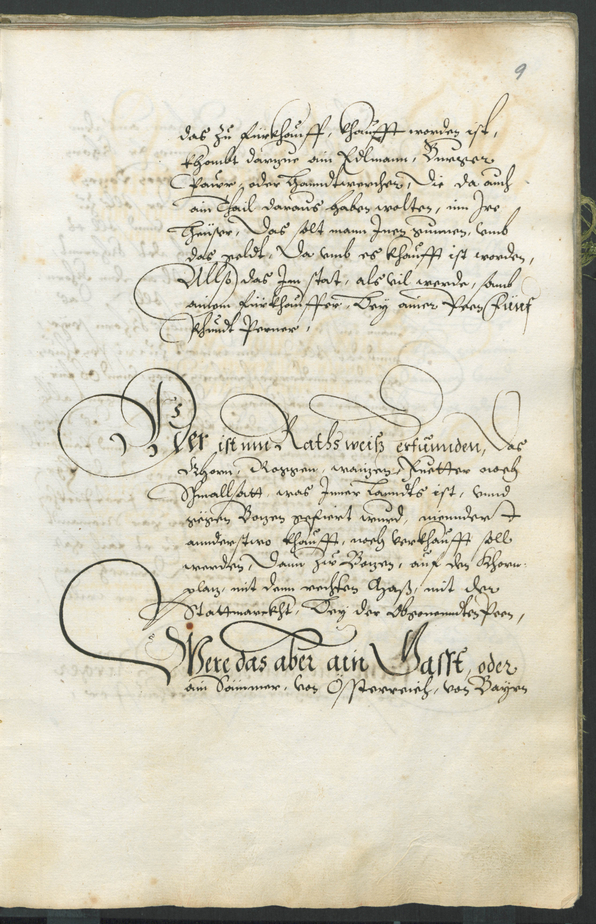 9
das zu fürkhauff, khaufft worden ist,
khombt darzue ain Edlmann, Burger
Paur, oder Handtwercher, die da auch
ain Thail daraus haben wolten, in Ire
Heuser, das solt mann Inen gunnen, umb
das geldt, da umb es khaufft ist worden,
Allß das Im stat, als vil werde, samb
ainem fürkhauffer, Bey ainer Peen fünf
Phundt Perner,
Er ist mit Raths weiß erfunden, das
Khorn, Roggen, waitzen, fuetter noch
Schmallsatt, was Inner Lanndts ist, unnd
gegen Botzen gefiert wurd, niendert
annderstwo khaufft, noch verkhaufft soll
werden, dann zu Botzen, auf den Khorn-
platz, mit dem rechten Maß, mit der
Stattmarckht, Bey der Obgenondten Peen,
Were das aber ain Gasst, oder
ain Sämmer, von Össterreich, von Bayrn